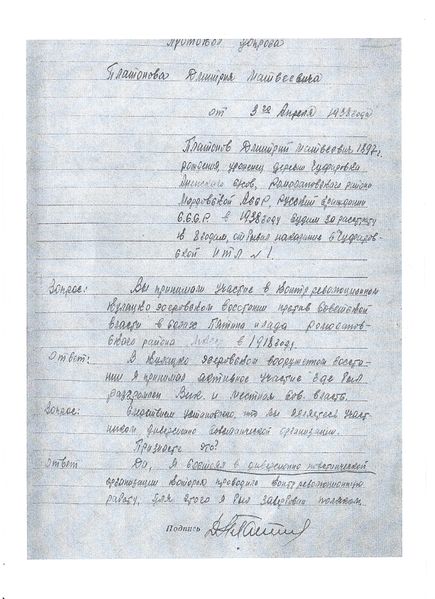 Протокол допроса
Платонова Дмитрия Матвеевича
от 3го Апреля 1938 года
Платонов Дмитрий Матвеевич 1897 г.
рождения, уроженец деревни Чуфаровка
с/сов, Ромодановского района
Мордовской АССР, русский гражданин
С.С.С.Р. в 1932 году судим за растрату
к годам, наказание в
ской ИТЛ № 1.
Вопрос: Вы принимали участие в контрреволюционном
Кулацко эсеровском восстании против Советской
власти в Пятина и Лада Ромоданов-
ского района в 1918 году.
Ответ: В Кулацко эсеровском вооружетом восста-
нии я принимал активное участие где был
разгромлен Вик и местная сов. власть.
Вопрос: Следствием установлено, что вы являетесь участ-
ником диверсионно повстанческой организации.
Признаете это?
Ответ Да, я состоял в диверсионно повстанческой
организации которая проводила контрреволюционную
работу, для этого я был завербован поляком.
Подпись